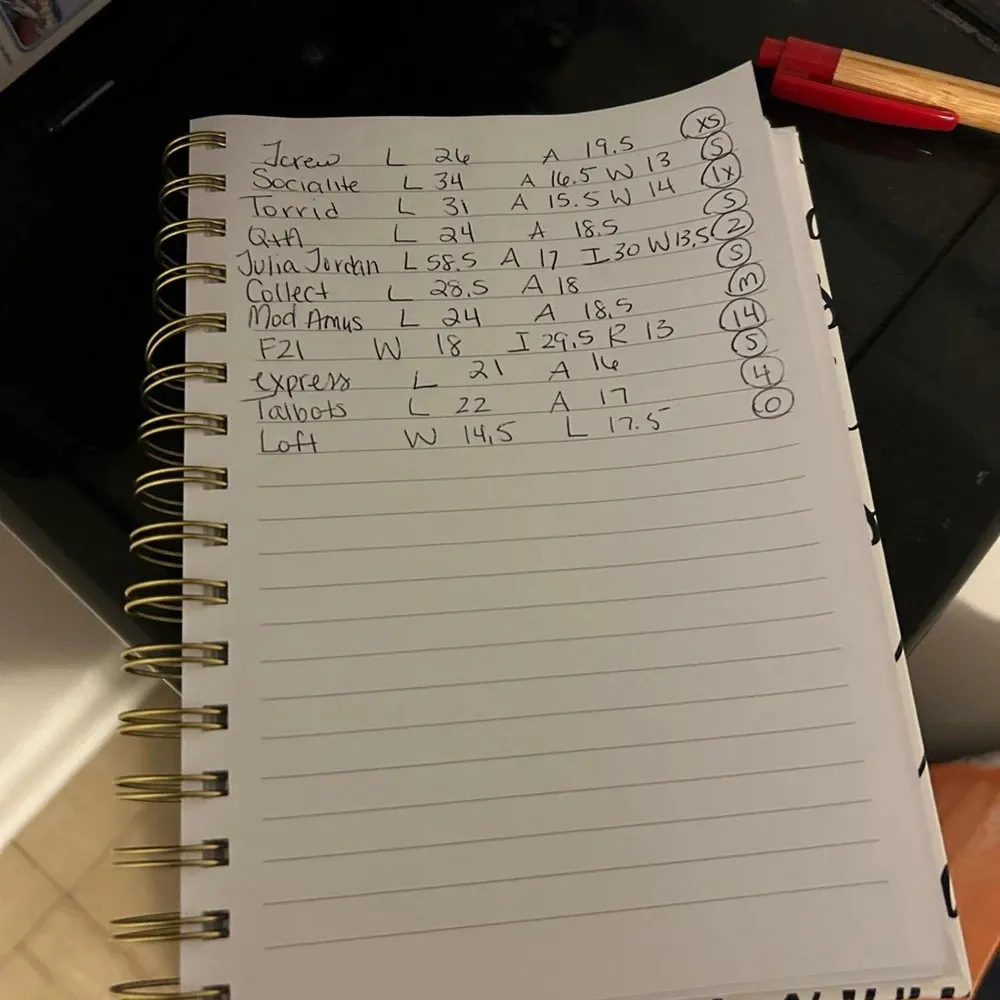 Jcrew L 26 A 19.5 XS
Socialite L 34 A 16.5 W 13 S
Torrid L 31 A 15.5 W 14 1X
L 24 A 18.5 S
Julia Jordan L 58.5 A 17 I 30 W 13.5 2
Collect L 28.5 A 18 S
Mod Amus L 24 A 18.5 M
F21 W 18 I 29.5 R 13 14
express L 21 A 16 S
Talbots L 22 A 17 4
Loft W 14.5 L 17.5 0